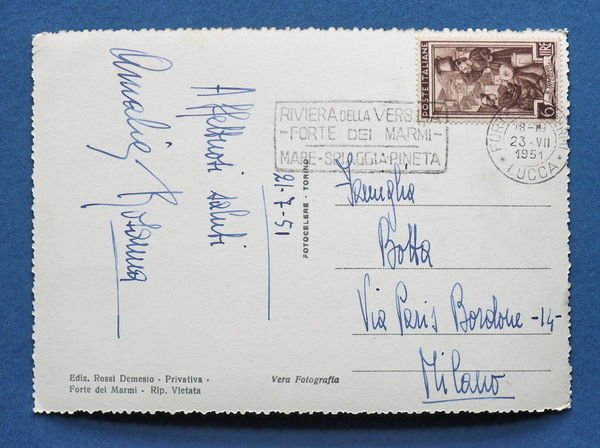 POSTE ITALIANE
LIRE 6
RIVIERA DELLA VERSILIA
-FORTE DEI MARMI-
MARE-SPIAGGIA-PINETA
18-19
23·VII
1951
LUCCA
Affettuosi saluti
Amalia Rosanna
21-7-51
FOTOCELERE - TORINO
Famiglia
Botta
Via Paris Bordone -14-
Milano
Ediz. Rossi Demesio - Privativa -
Forte dei Marmi - Rip. Vietata
Vera Fotografia